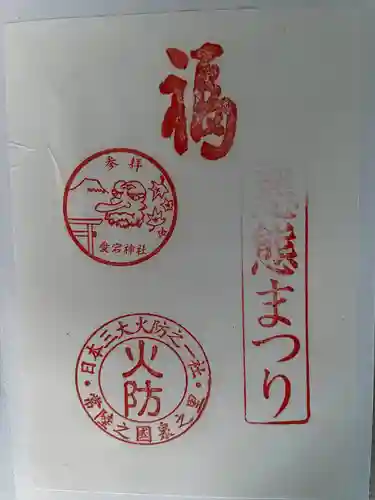 福
参拝
愛宕神社
悪態まつり
日本三大火防之一社
火防
常陸之國泉之